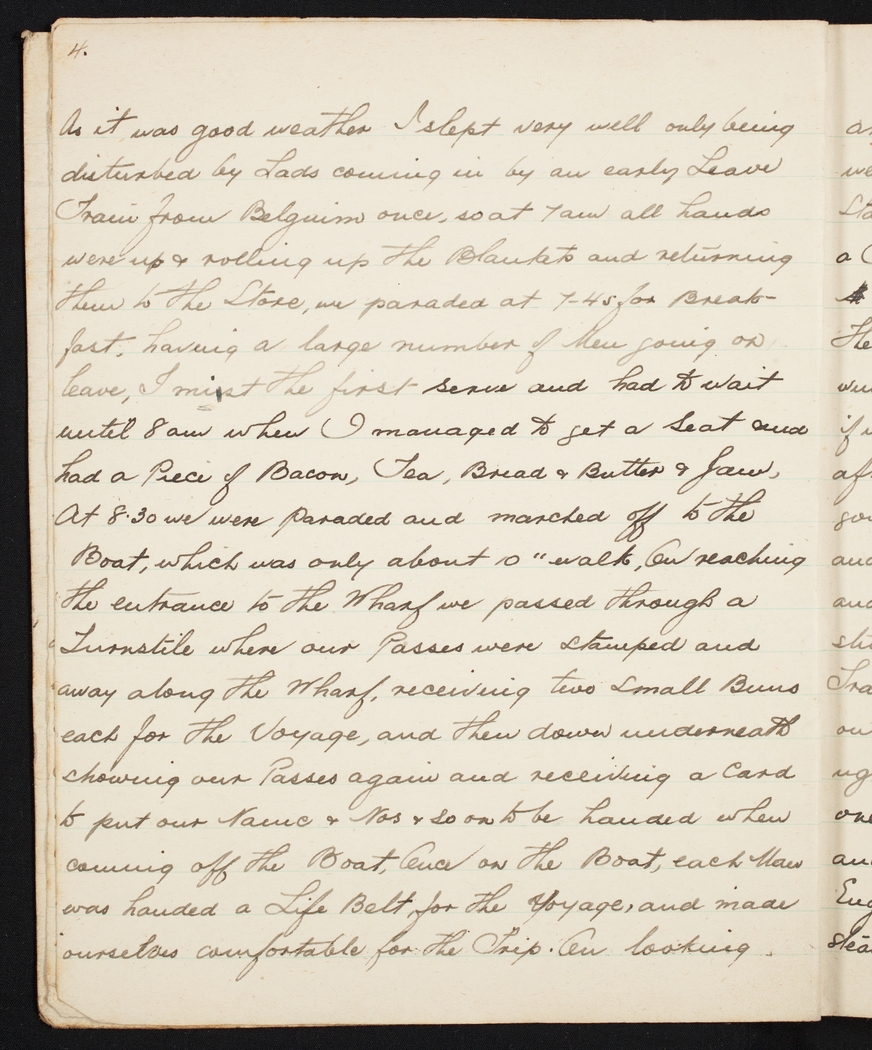 4.
As it was good weather I slept very well only being
disturbed by Lads coming in by an early Leave
Train from Belguim once, so at 7am all hands
were up & rolling up the Blankets and returning
them to the Store, we paraded at 7-45 for Break-
fast, having a large number of Men going on
leave, I misst the first serve and had to wait
until 8am when I managed to get a Seat and
had a Piece of Bacon, Tea, Bread & Butter & Jam,
At 8.30 we were paraded and marched off to the
Boat, which was only about 10" walk, On reaching
the entrance to the Wharf we passed through a
Turnstile where our Passes were stamped and
away along the Wharf, receiving two Small Buns
each for the Voyage, and then down underneath
showing our Passes again and receiving a Card
to put our Name & Nos & so on to be handed when
coming off the Boat, Once on the Boat, each Man
was handed a Life Belt, for the Voyage, and made
ourselves comfortable for the Trip. On looking